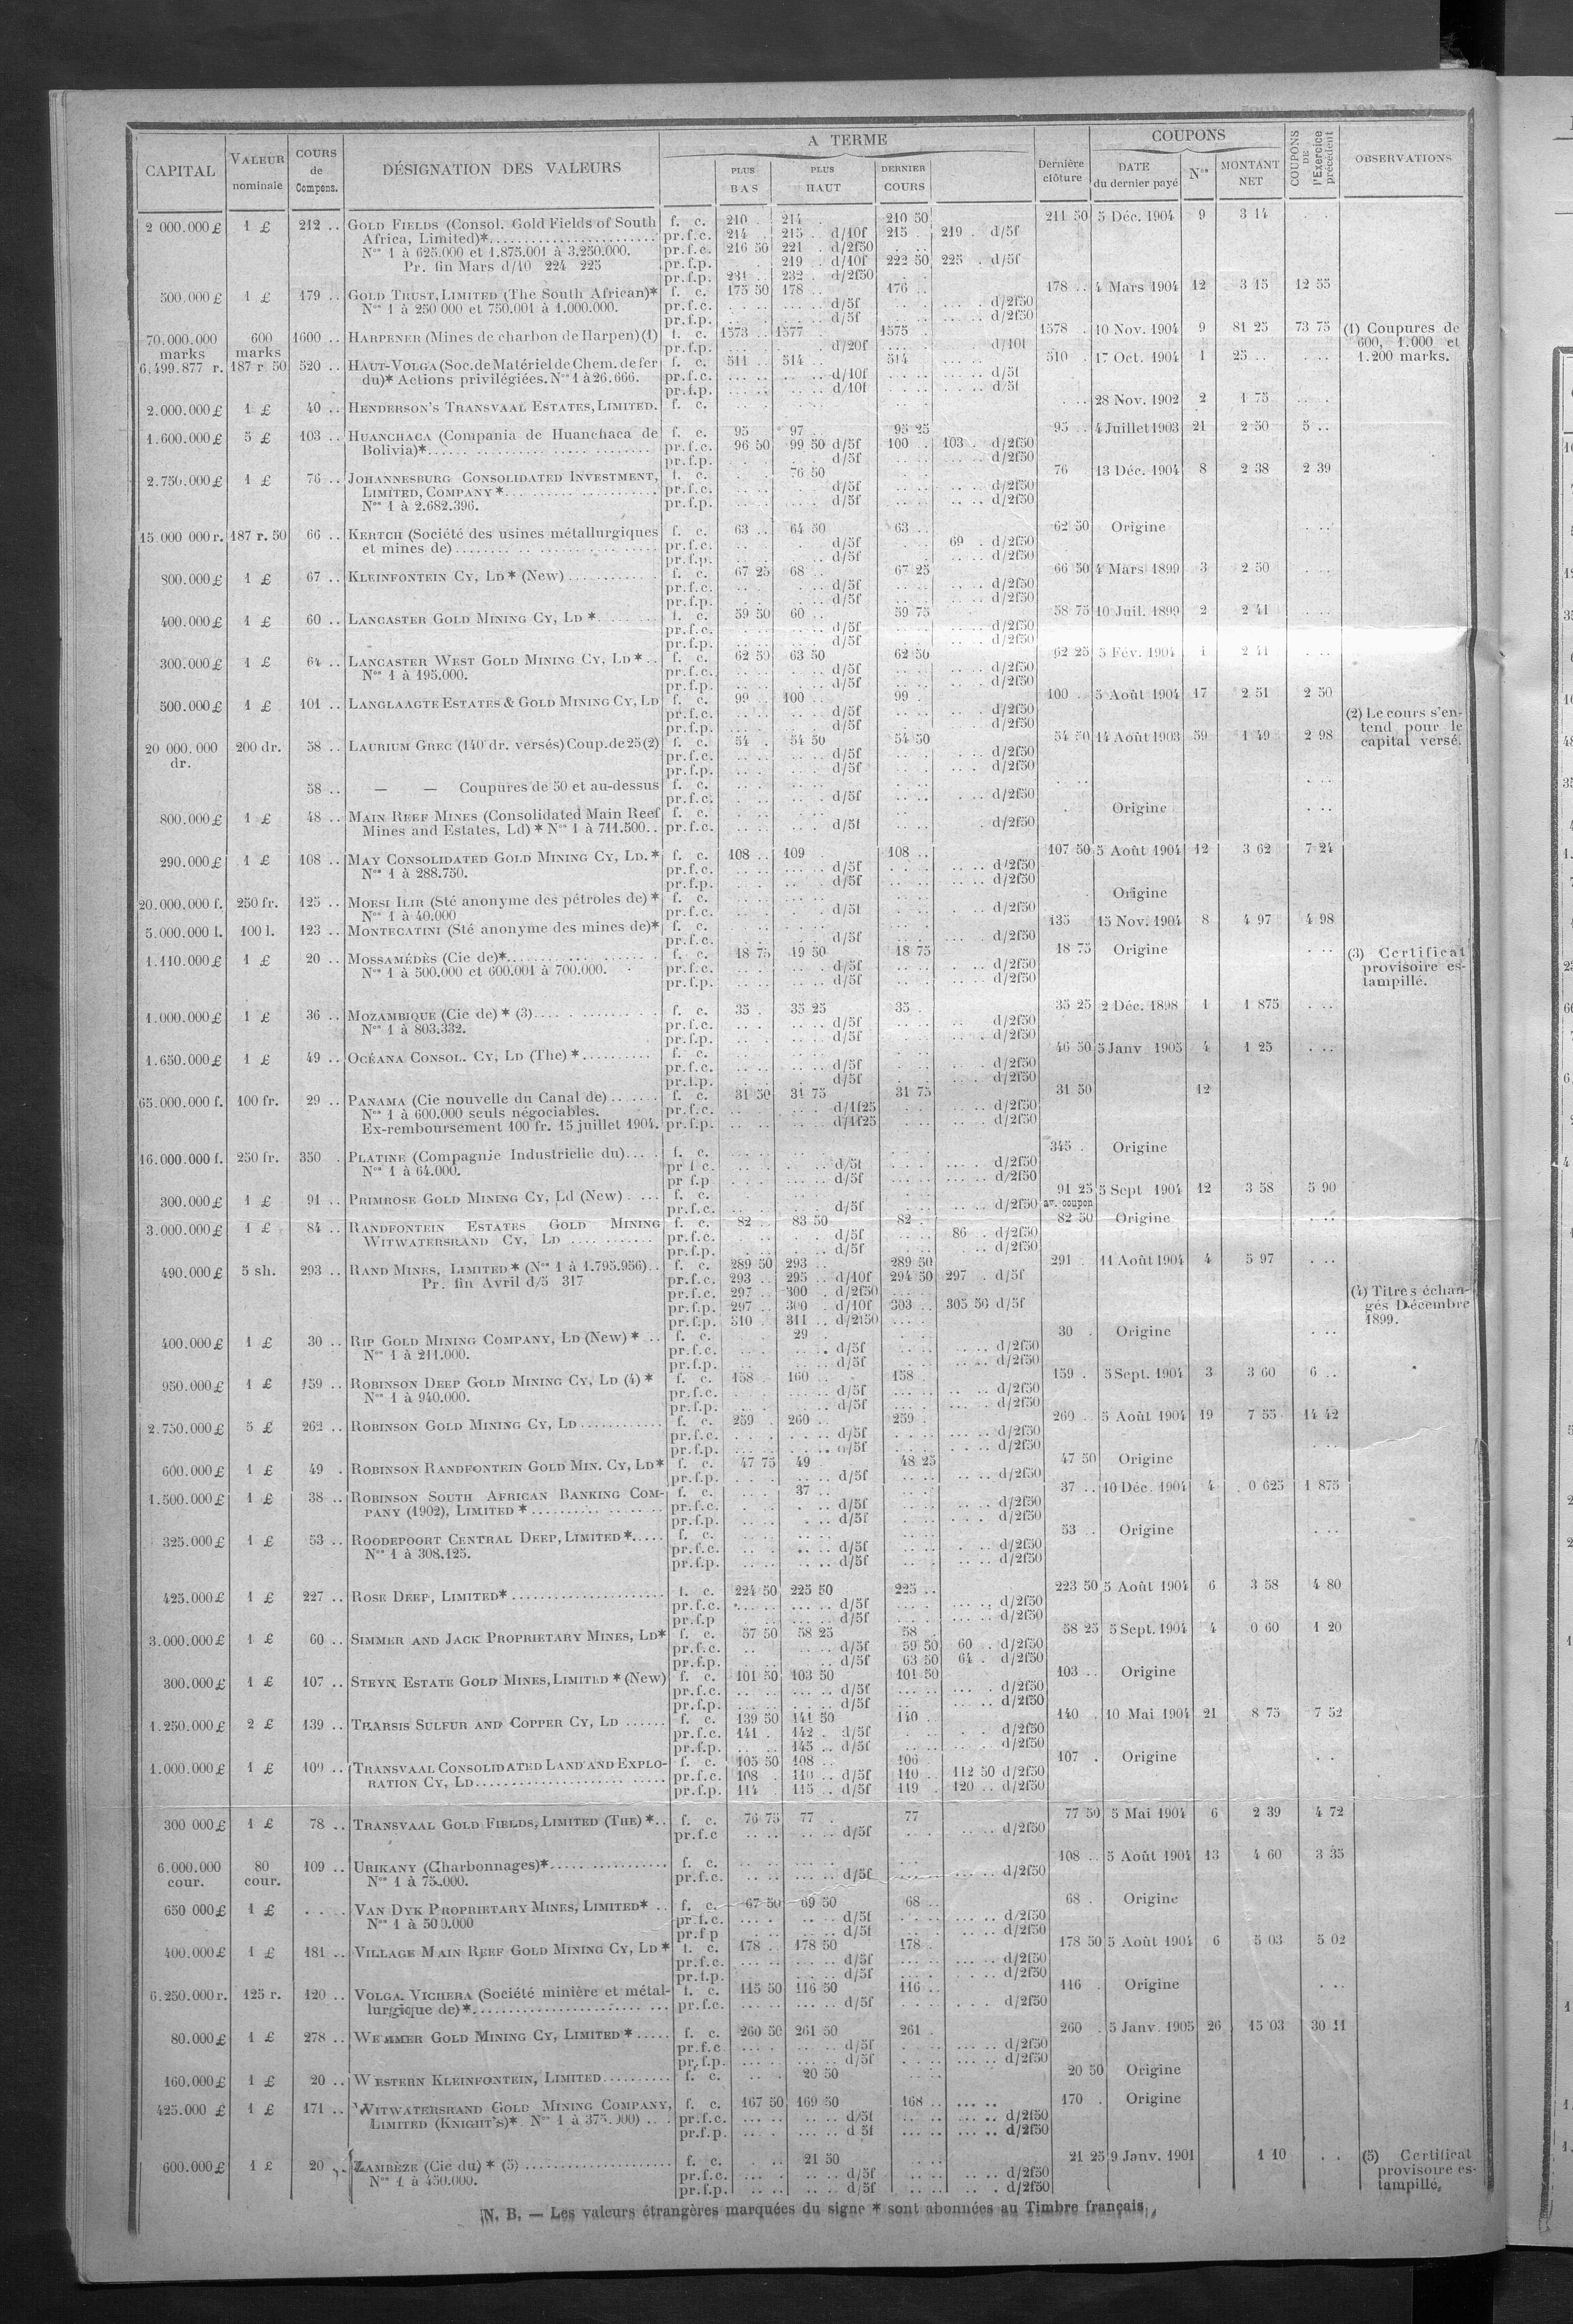 CAPITAL VALEUR nominale COURS de Compens. DÉSIGNATION DES VALEURS A TERME PLUS BAS PLUS HAUT DERNIER COURS Dernière clôture COUPONS DATE du dernier payé Nos MONTANT NET COUPONS DE l'Exercice précédent OBSERVATIONS
2 000.000 £ 1 £ 212 .. GOLD FIELDS (Consol. Gold Fields of South f. c. 210 . 214 . 210 50 211 50 5 Déc. 1904 9 3 14
Africa, Limited)* pr.f.c. 214 . 215 . d/10f 215 . 219 . d/5f
Nos 1 à 625.000 et 1.875.001 à 3.250.000. pr.f.c. 216 50 221 . d/2f50
Pr. fin Mars d/10 224 225 pr.f.p. 219 . d/10f 222 50 225 . d/5f
pr.f.p. 231 .. 232 . d/2f50
500.000 £ 1 £ 179 .. GOLD TRUST, LIMITED (The South African)* f. c. 175 50 178 .. 176 .. 178 .. 4 Mars 1904 12 3 15 12 55
Nos 1 à 250 000 et 750.001 à 1.000.000. pr.f.c. d/5f d/2f50
pr.f.p. d/5f d/2f50
70.000.000 marks 600 marks 1600 .. HARPENER (Mines de charbon de Harpen) (1) f. c. 1573 .. 1577 1575 . 1578 . 10 Nov. 1904 9 81 25 73 75 (1) Coupures de
pr.f.p. d/20f d/10f 600, 1.000 et
6.499.877 r. 187 r 50 520 .. HAUT-VOLGA (Soc. de Matériel de Chem. de fer f. c. 511 . 514 .. 514 510 . 17 Oct. 1904 1 25 .. 1.200 marks.
du)* Actions privilégiées. Nos 1 à 26.666. pr.f.c. d/10f d/5f
pr.f.p. d/10f d/5f
2.000.000 £ 1 £ 40 .. HENDERSON'S TRANSVAAL ESTATES, LIMITED. f. c. 28 Nov. 1902 2 1 75
1.600.000 £ 5 £ 103 .. HUANCHACA (Compania de Huanchaca de f. c. 95 97 .. 95 25 95 .. 4 Juillet 1903 21 2 50 5 ..
Bolivia)* pr.f.c. 96 50 99 50 d/5f 100 . 103 . d/2f50
pr.f.p. d/5f d/2f50
2.750.000 £ 1 £ 76 .. JOHANNESBURG CONSOLIDATED INVESTMENT, f. c. 76 50 76 13 Déc. 1904 8 2 38 2 39
LIMITED, COMPANY * pr.f.c. d/5f d/2f50
Nos 1 à 2.682.396. pr.f.p. d/5f d/2f50
15.000 000 r. 187 r. 50 66 .. KERTCH (Société des usines métallurgiques f. c. 63 .. 64 50 63 .. 62 50 Origine
et mines de) pr.f.c. d/5f 69 . d/2f50
pr.f.p. d/5f d/2f50
800.000 £ 1 £ 67 .. KLEINFONTEIN CY, LD * (New) f. c. 67 25 68 .. 67 25 66 50 4 Mars 1899 3 2 50
pr.f.c. d/5f d/2f50
pr.f.p. d/5f d/2f50
400.000 £ 1 £ 60 .. LANCASTER GOLD MINING CY, LD * f. c. 59 50 60 .. 59 75 58 75 10 Juil. 1899 2 2 41
pr.f.c. d/5f d/2f50
pr.f.p. d/5f d/2f50
300.000 £ 1 £ 64 .. LANCASTER WEST GOLD MINING CY, LD * f. c. 62 50 63 50 62 50 62 25 5 Fév. 1904 1 2 41
Nos 1 à 195.000. pr.f.c. d/5f d/2f50
pr.f.p. d/5f d/2f50
500.000 £ 1 £ 101 .. LANGLAAGTE ESTATES & GOLD MINING CY, LD f. c. 99 .. 100 .. 99 .. 100 .. 5 Août 1904 17 2 51 2 50
pr.f.c. d/5f d/2f50 (2) Le cours s'en-
pr.f.p. d/5f d/2f50 tend pour le
20 000.000 dr. 200 dr. 58 .. LAURIUM GREC (140 dr. versés) Coup. de 25 (2) f. c. 54 . 54 50 54 50 54 50 14 Août 1903 59 1 49 2 98 capital versé.
pr.f.c. d/5f d/2f50
pr.f.p. d/5f d/2f50
58 .. — — Coupures de 50 et au-dessus f. c.
pr.f.c. d/5f d/2f50
800.000 £ 1 £ 48 .. MAIN REEF MINES (Consolidated Main Reef f. c. Origine
Mines and Estates, Ld) * Nos 1 à 711.500.. pr.f.c. d/5f d/2f50
290.000 £ 1 £ 108 .. MAY CONSOLIDATED GOLD MINING CY, LD. * f. c. 108 .. 109 108 .. 107 50 5 Août 1904 12 3 62 7 24
Nos 1 à 288.750. pr.f.c. d/5f d/2f50
pr.f.p. d/5f d/2f50
20.000.000 f. 250 fr. 125 .. MORSI ILIR (Sté anonyme des pétroles de) * f. c. Origine
Nos 1 à 40.000 pr.f.c. d/5f d/2f50
5.000.000 l. 100 l. 123 .. MONTECATINI (Sté anonyme des mines de)* f. c. 135 15 Nov. 1904 8 4 97 4 98
pr.f.c. d/5f d/2f50
1.110.000 £ 1 £ 20 .. MOSSAMÉDÈS (Cie de)* f. c. 18 75 19 50 18 75 18 75 Origine (3) Certificat
Nos 1 à 500.000 et 600.001 à 700.000. pr.f.c. d/5f d/2f50 provisoire es-
pr.f.p. d/5f d/2f50 tampillé.
1.000.000 £ 1 £ 36 .. MOZAMBIQUE (Cie de) * (3) f. c. 35 . 35 25 35 . 35 25 2 Déc. 1898 1 1 875
Nos 1 à 803.332. pr.f.c. d/5f d/2f50
pr.f.p. d/5f d/2f50
1.650.000 £ 1 £ 49 .. OCÉANA CONSOL. CY, LD (The) * f. c. 46 50 5 Janv 1905 4 1 25
pr.f.c. d/5f d/2f50
pr.f.p. d/5f d/2f50
65.000.000 f. 100 fr. 29 .. PANAMA (Cie nouvelle du Canal de) f. c. 31 50 31 75 31 75 31 50 12
Nos 1 à 600.000 seuls négociables. pr.f.c. d/1f25 d/2f50
Ex-remboursement 100 fr. 15 juillet 1904. pr.f.p. d/1f25 d/2f50
16.000.000 f. 250 fr. 350 . PLATINE (Compagnie Industrielle du) f. c. 345 . Origine
Nos 1 à 64.000. pr f c. d/5f d/2f50
pr f.p d/5f d/2f50
300.000 £ 1 £ 91 .. PRIMROSE GOLD MINING CY, Ld (New) f. c. 91 25 5 Sept 1904 12 3 58 5 90
pr.f.c. d/5f d/2f50 av. coupon
3.000.000 £ 1 £ 84 .. RANDFONTEIN ESTATES GOLD MINING f. c. 82 .. 83 50 82 . 82 50 Origine
WITWATERSRAND CY, LD pr.f.c. d/5f 86 . d/2f50
pr.f.p. d/5f d/2f50
490.000 £ 5 sh. 293 .. RAND MINES, LIMITED * (Nos 1 à 1.795.956) f. c. 289 50 293 .. 289 50 291 . 11 Août 1904 4 5 97
Pr. fin Avril d/5 317 pr.f.c. 293 .. 295 .. d/10f 294 50 297 . d/5f
pr.f.c. 297 .. 300 . d/2f50 (4) Titres échan-
pr.f.p. 297 .. 300 . d/10f 303 .. 305 50 d/5f gés Décembre
pr.f.p. 310 . 311 .. d/2f50 1899.
400.000 £ 1 £ 30 .. RIP GOLD MINING COMPANY, LD (New) * f. c. 29 . 30 . Origine
Nos 1 à 211.000. pr.f.c. d/5f d/2f50
pr.f.p. d/5f d/2f50
950.000 £ 1 £ 159 .. ROBINSON DEEP GOLD MINING CY, LD (4) * f. c. 158 . 160 .. 158 . 159 . 5 Sept. 1904 3 3 60 6 ..
Nos 1 à 940.000. pr.f.c. d/5f d/2f50
pr.f.p. d/5f d/2f50
2.750.000 £ 5 £ 262 .. ROBINSON GOLD MINING CY, LD f. c. 259 . 260 .. 259 . 260 .. 5 Août 1904 19 7 55 14 42
pr.f.c. d/5f d/2f50
pr.f.p. d/5f d/2f50
600.000 £ 1 £ 49 . ROBINSON RANDFONTEIN GOLD MIN. CY, LD* f. c. 47 75 49 48 25 47 50 Origine
pr.f.p. d/5f d/2f50
1.500.000 £ 1 £ 38 .. ROBINSON SOUTH AFRICAN BANKING COM- f. c. 37 .. 37 .. 10 Déc. 1904 4 0 625 1 875
PANY (1902), LIMITED * pr.f.c. d/5f d/2f50
pr.f.p. d/5f d/2f50
325.000 £ 1 £ 53 .. ROODEPOORT CENTRAL DEEP, LIMITED * f. c. 53 . Origine
Nos 1 à 308.125. pr.f.c. d/5f d/2f50
pr.f.p. d/5f d/2f50
425.000 £ 1 £ 227 .. ROSE DEEP, LIMITED* f. c. 224 50 225 50 225 .. 223 50 5 Août 1904 6 3 58 4 80
pr.f.c. d/5f d/2f50
pr.f.p d/5f d/2f50
3.000.000 £ 1 £ 60 .. SIMMER AND JACK PROPRIETARY MINES, LD* f. c. 57 50 58 25 58 . 58 25 5 Sept. 1904 4 0 60 1 20
pr.f.c. d/5f 59 50 60 . d/2f50
pr.f.p. d/5f 63 50 64 . d/2f50
300.000 £ 1 £ 107 .. STEYN ESTATE GOLD MINES, LIMITED * (New) f. c. 101 50 103 50 101 50 103 .. Origine
pr.f.c. d/5f d/2f50
pr.f.p. d/2f50
1.250.000 £ 2 £ 139 .. THARSIS SULFUR AND COPPER CY, LD f. c. 139 50 141 50 140 . 140 . 10 Mai 1904 21 8 75 7 52
pr.f.c. 141 . 142 . d/5f d/2f50
pr.f.p. 145 .. d/5f d/2f50
1.000.000 £ 1 £ 109 .. TRANSVAAL CONSOLIDATED LAND AND EXPLO- f. c. 105 50 108 .. 106 107 . Origine
RATION CY, LD pr.f.c. 108 . 110 .. d/5f 110 . 112 50 d/2f50
pr.f.p. 114 . 115 .. d/5f 119 . 120 .. d/2f50
300 000 £ 1 £ 78 .. TRANSVAAL GOLD FIELDS, LIMITED (THE) * f. c. 76 75 77 . 77 77 50 5 Mai 1904 6 2 39 4 72
pr.f.c d/5f d/2f50
6.000.000 cour. 80 cour. 109 .. URIKANY (Charbonnages)* f. c. 108 .. 5 Août 1904 13 4 60 3 35
Nos 1 à 75.000. pr.f.c. d/5f d/2f50
650 000 £ 1 £ . . VAN DYK PROPRIETARY MINES, LIMITED * f. c. 67 50 69 50 68 .. 68 . Origine
Nos 1 à 500.000 pr.f.c. d/5f d/2f50
pr.f.p d/5f d/2f50
400.000 £ 1 £ 181 .. VILLAGE MAIN REEF GOLD MINING CY, LD * f. c. 178 .. 178 50 178 . 178 50 5 Août 1904 6 5 03 5 02
pr.f.c. d/5f d/2f50
pr.f.p. d/5f d/2f50
6.250.000 r. 125 r. 120 .. VOLGA VICHERA (Société minière et métal- f. c. 115 50 116 50 116 .. 116 . Origine
lurgique de)* pr.f.c. d/5f d/2f50
80.000 £ 1 £ 278 .. WEMMER GOLD MINING CY, LIMITED * f. c. 260 50 261 50 261 . 260 . 5 Janv. 1905 26 15 03 30 11
pr.f.c d/5f d/2f50
pr.f.p. d/5f d/2f50
160.000 £ 1 £ 20 .. WESTERN KLEINFONTEIN, LIMITED f. c. 20 50 20 50 Origine
425.000 £ 1 £ 171 .. WITWATERSRAND GOLD MINING COMPANY, f. c. 167 50 169 50 168 .. 170 . Origine
LIMITED (KNIGHT'S)* Nos 1 à 375.000) pr.f.c. d/5f d/2f50
pr.f.p. d 5f d/2f50
600.000 £ 1 £ 20 .. ZAMBÈZE (Cie du) * (5) f. c. 21 50 21 25 9 Janv. 1901 1 10 (5) Certificat
Nos 1 à 450.000. pr.f.c. d/5f d/2f50 provisoire es-
pr.f.p. d/5f d/2f50 tampillé.
N. B. — Les valeurs étrangères marquées du signe * sont abonnées au Timbre français.